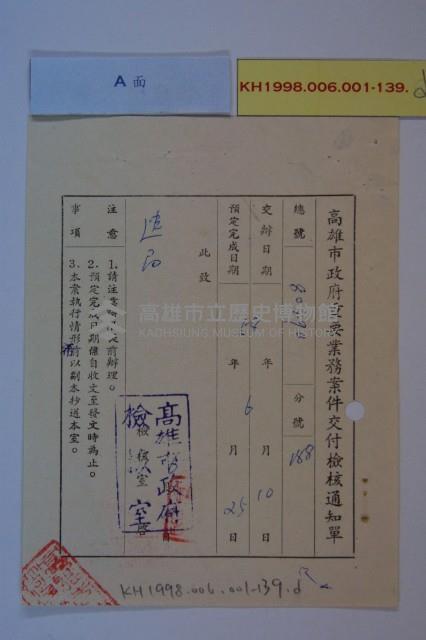 A面
KH1998.006.001-139.d
高雄市政府重要業務案件交付檢核通知單
總號
分號 188
交辦日期 年 6 月 10 日
預定完成日期 58 年 月 25 日
此致
建局
高雄市政府
檢核室
檢核室 啓
注意事項
1.請注意 前辦理。
2.預定完成日期係自收文至發文時為止。
3.本案執行情形 前以副本抄送本室。
高雄市立歷史博物館
KAOHSIUNG MUSEUM OF HISTORY
KH1998.006.001-139.d